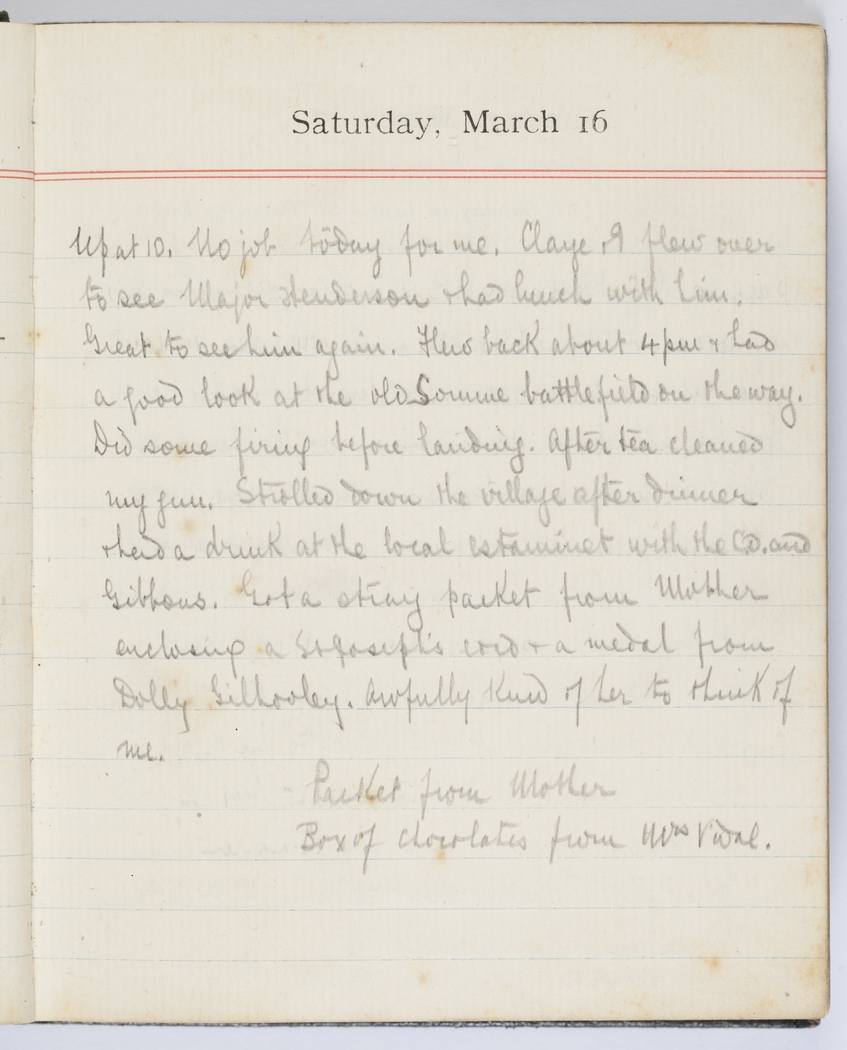 Saturday, March 16
Up at 10. No job today for me. Claye & I flew over
to see Major Henderson & had lunch with him.
Great to see him again. Flew back about 4 pm & had
a good look at the old Somme battlefield on the way.
Did some firing before landing. After tea cleaned
my gun. Strolled down the village after dinner
& had a drink at the local estaminet with the C.O. and
Gibbons. Got a stray packet from Mother
enclosing a St Joseph's cord & a medal from
Dolly Gilhooley. Awfully kind of her to think of
me.
Packet from Mother
Box of chocolates from Mrs Vidal.